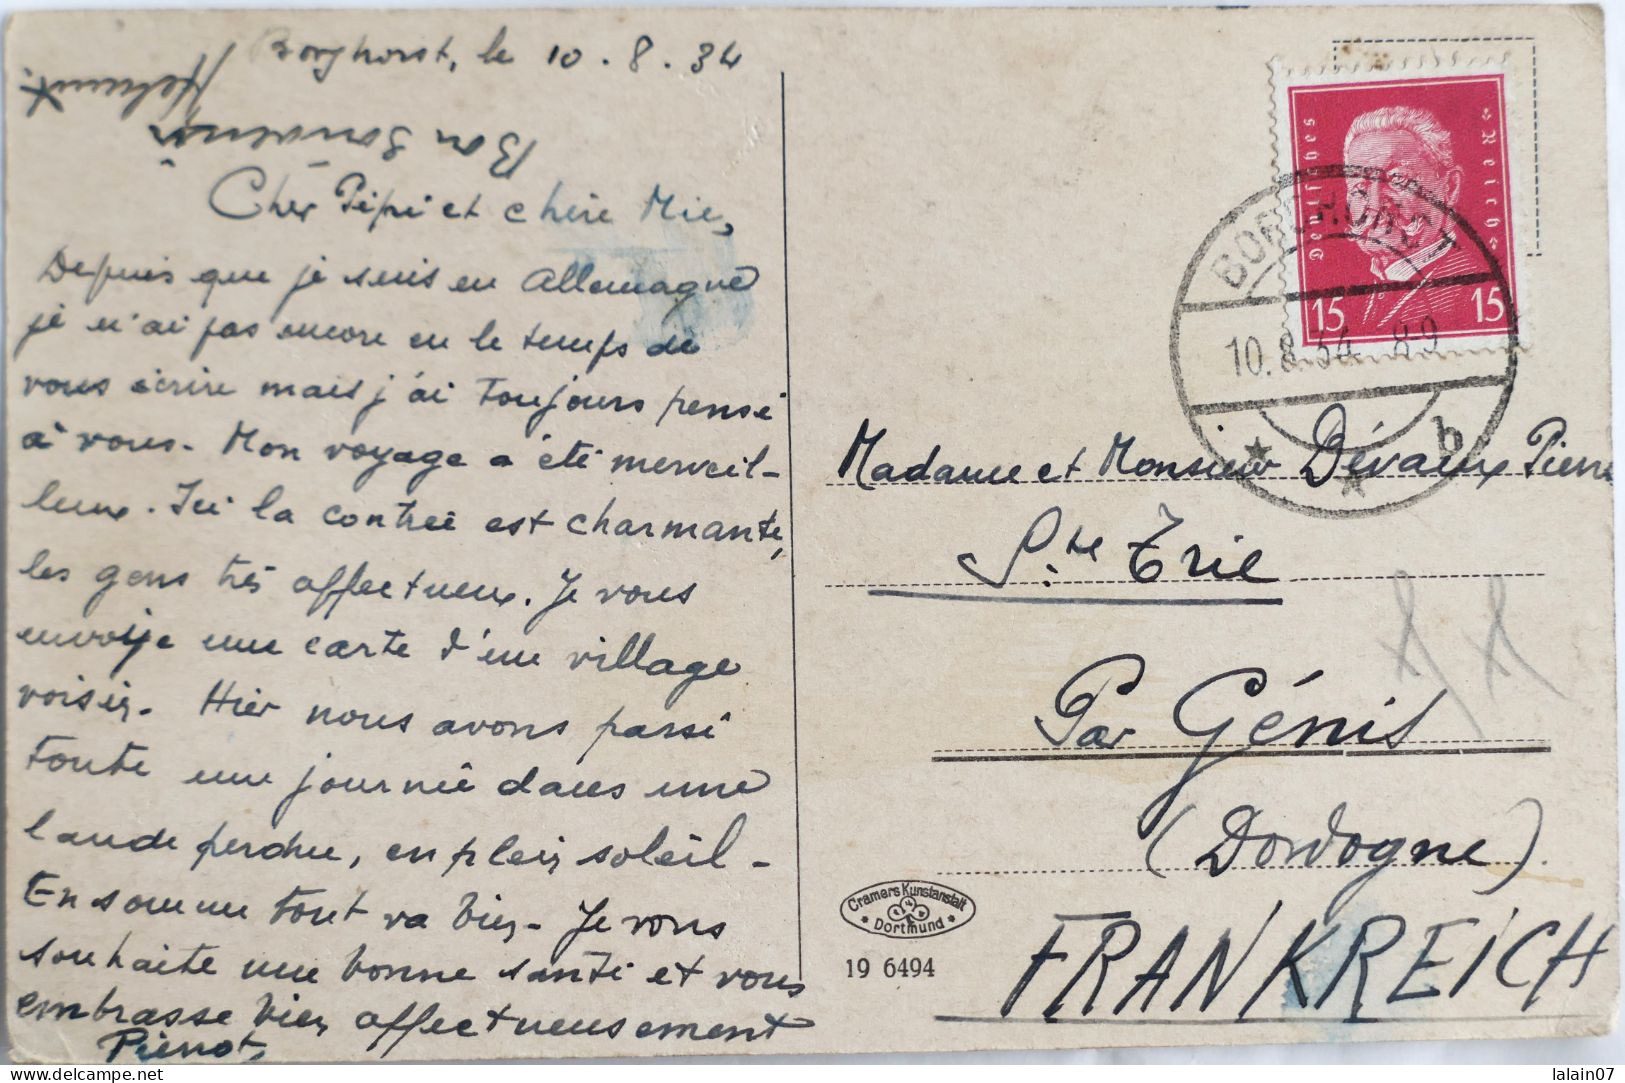 Borghorst, le 10.8.34
Bon souvenir
Helmut
Cher Pépi et chère Mie,
Depuis que je suis en Allemagne
je n'ai pas encore eu le temps de
vous écrire mais j'ai toujours pensé
à vous. Mon voyage a été merveil-
leux. Ici la contrée est charmante,
les gens très affectueux. Je vous
envoie une carte d'un village
voisin. Hier nous avons passé
toute une journée dans une
lande perdue, en plein soleil -
En somme tout va bien. Je vous
souhaite une bonne santé et vous
embrasse bien affectueusement
Pierrot
Deutsches Reich
15 15
BORGHORST
10.8.34 8-9
b
Madame et Monsieur Dévaux Pierre
Ste Trie
Par Génis
(Dordogne).
FRANKREICH
Cramers Kunstanstalt
Dortmund
19 6494
lalain07
delcampe.net